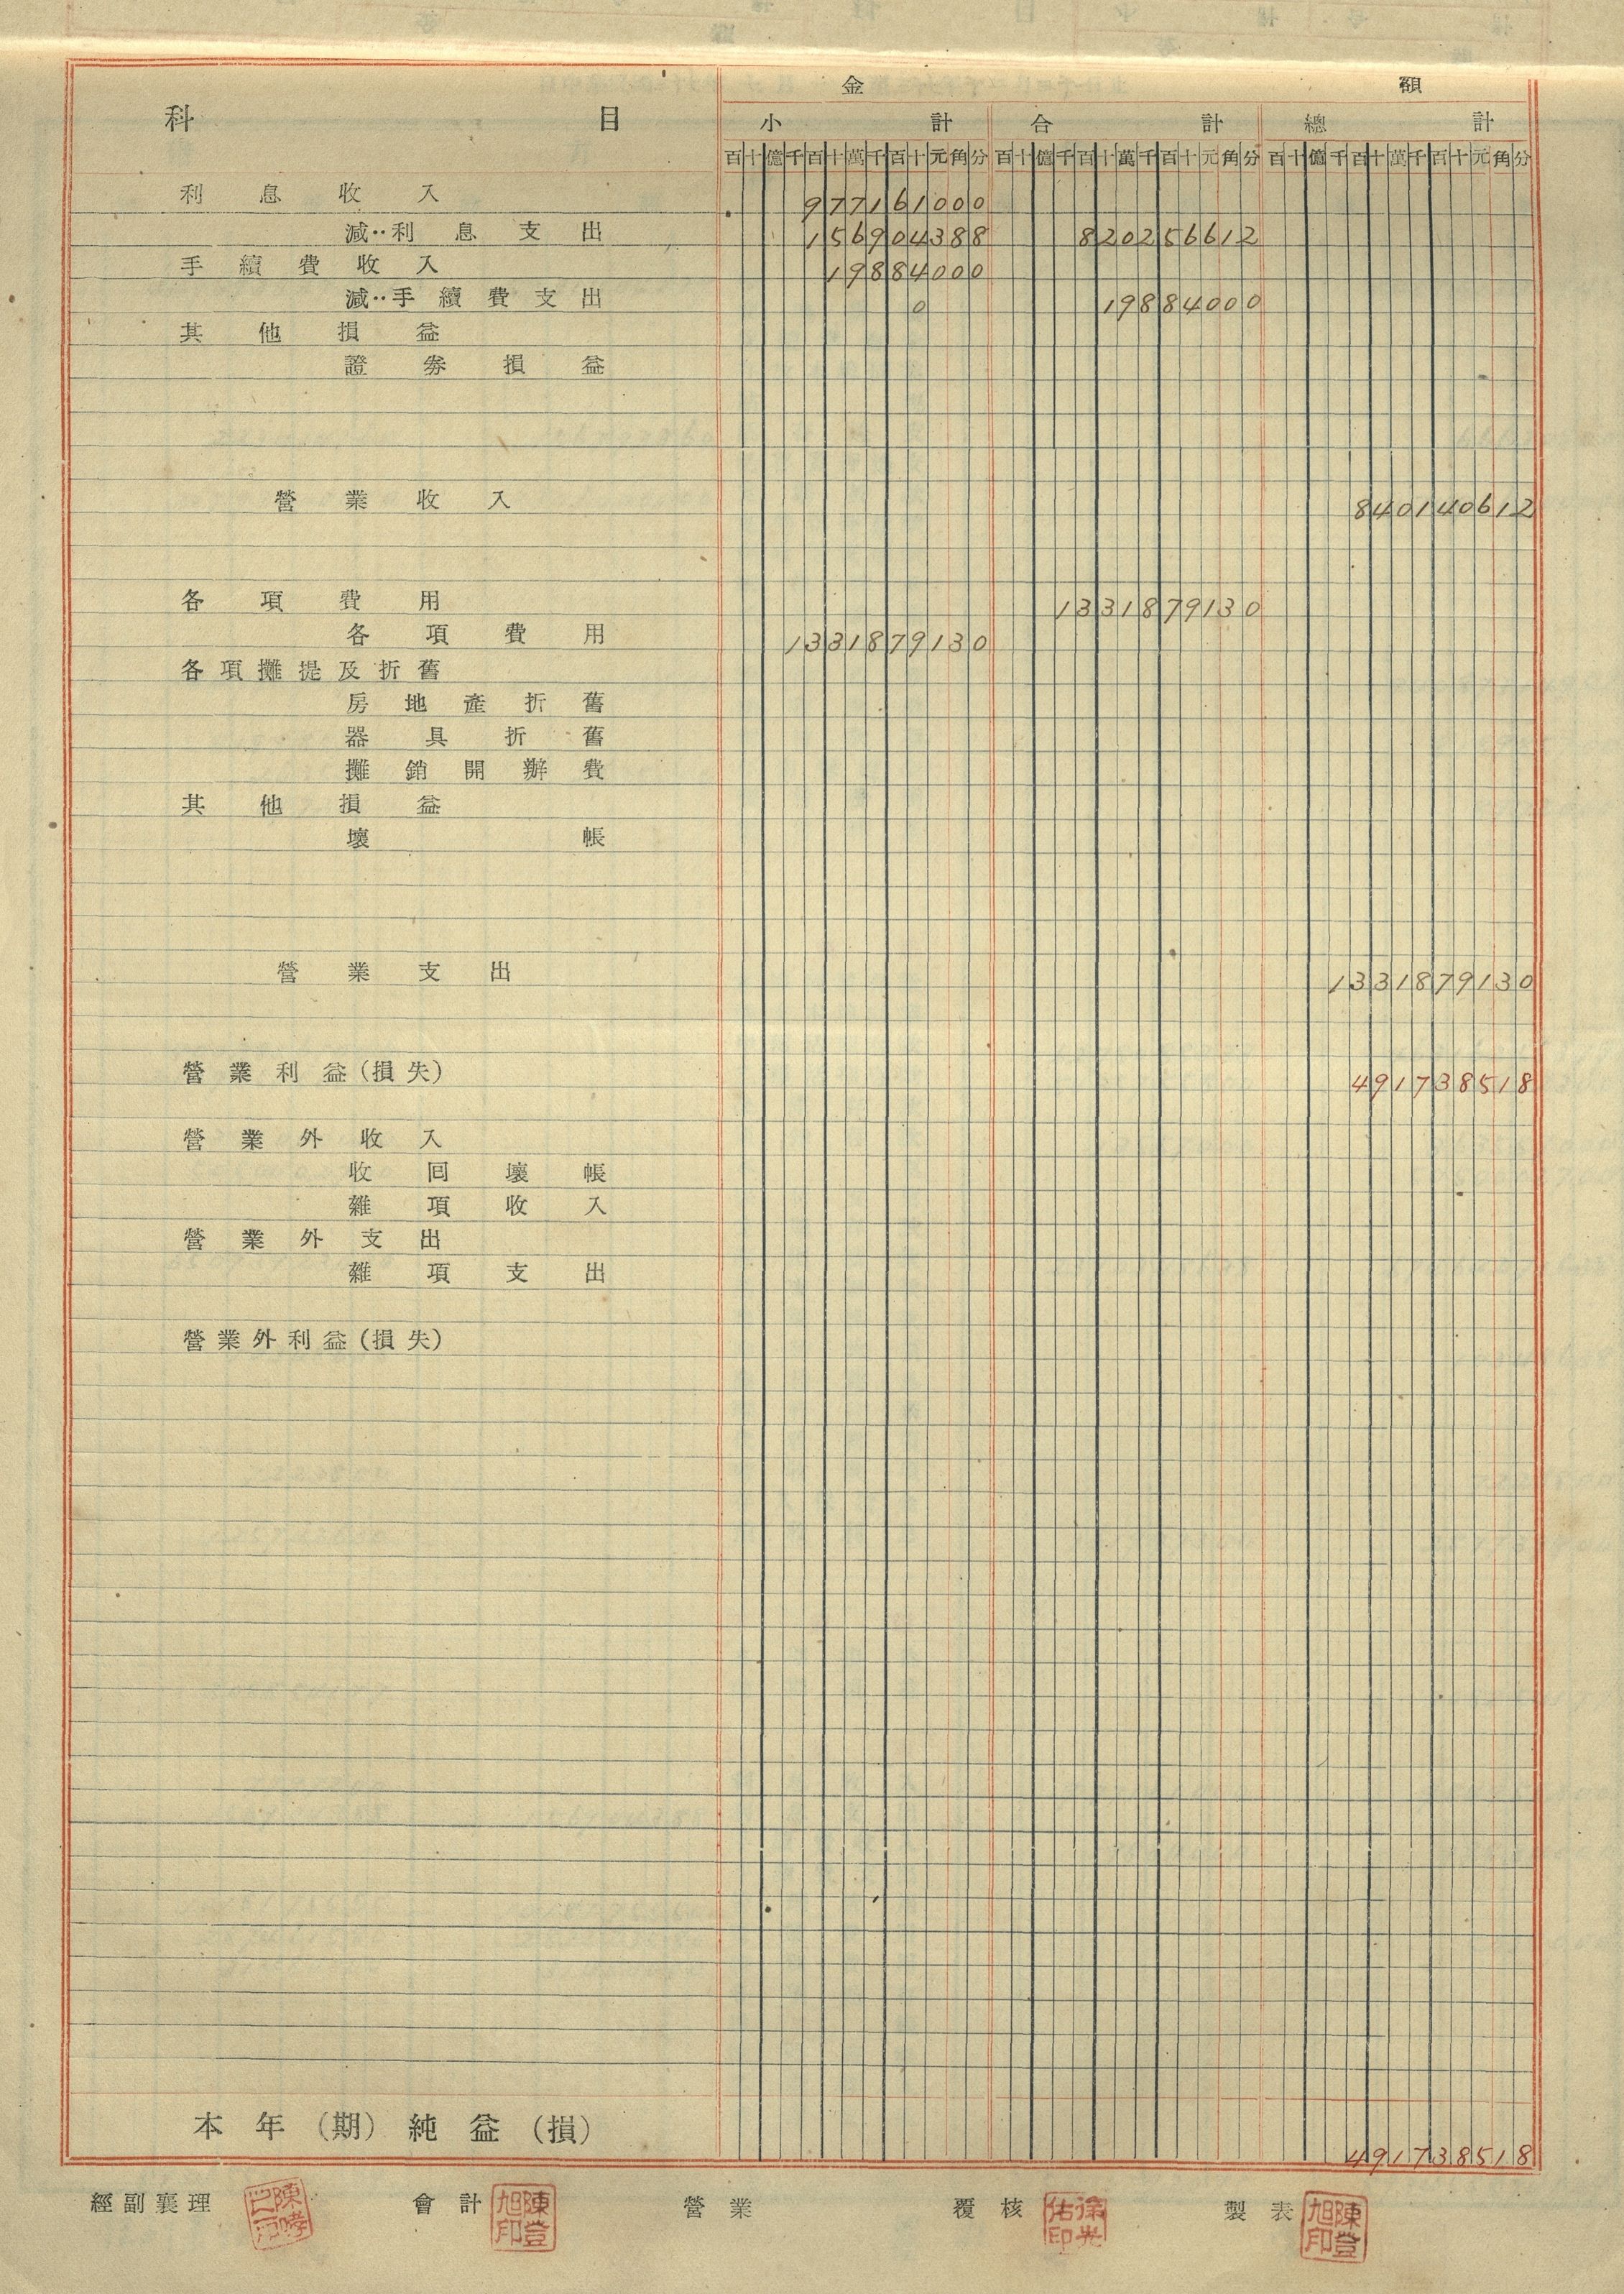 金 額
科 目 小 計 合 計 總 計
百十億千百十萬千百十元角分 百十億千百十萬千百十元角分 百十億千百十萬千百十元角分
利息收入 977161000
減:利息支出 156904388 820256612
手續費收入 19884000
減:手續費支出 0 19884000
其他損益
證券損益
營業收入 840140612
各項費用 1331879130
各項費用 1331879130
各項攤提及折舊
房地產折舊
器具折舊
攤銷開辦費
其他損益
壞帳
營業支出 1331879130
營業利益(損失) 491738518
營業外收入
收回壞帳
雜項收入
營業外支出
雜項支出
營業外利益(損失)
本年(期)純益(損) 491738518
經副襄理 會計 陳登旭印 營業 覆核 徐光佑印 製表 陳登旭印